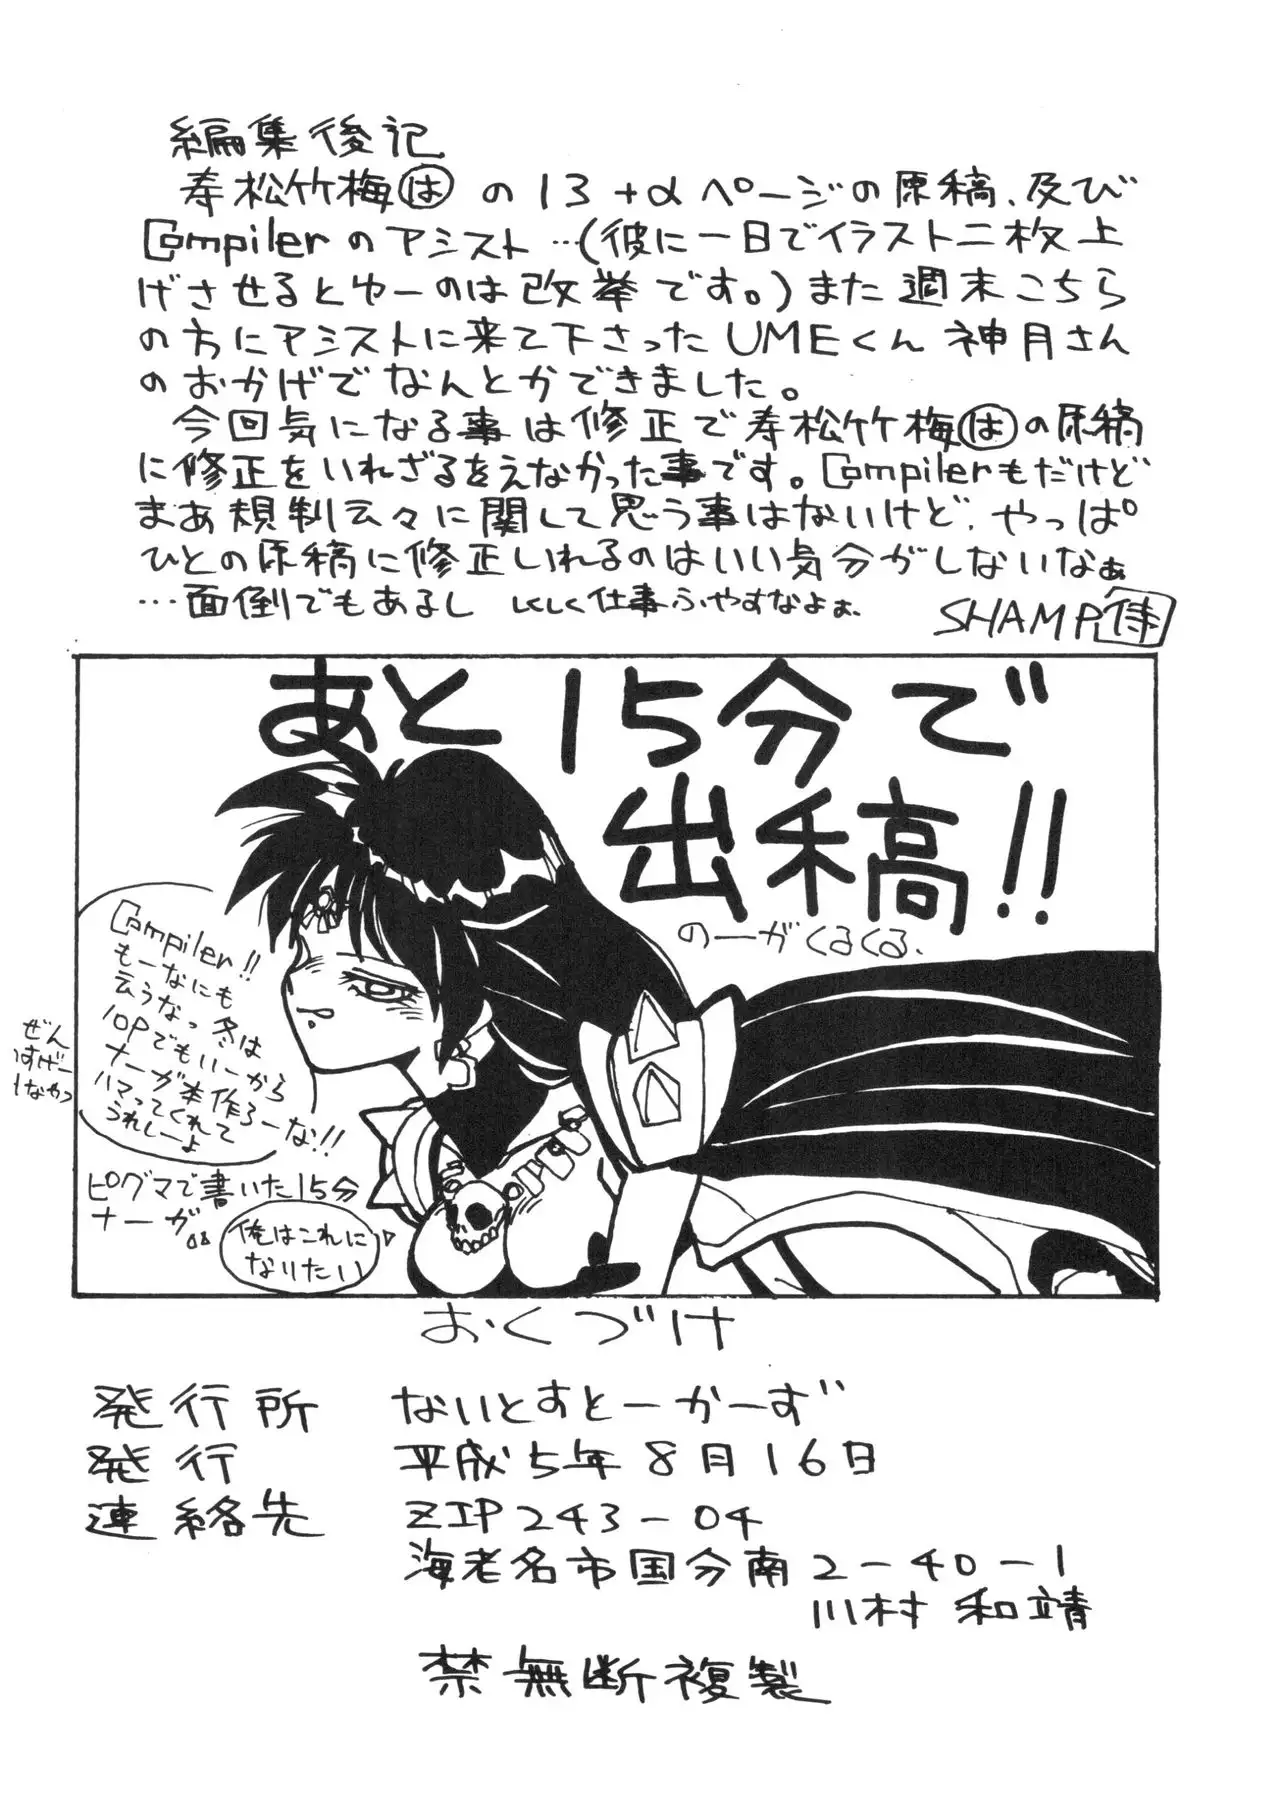 編集後記
寿松竹梅はの13+αページの原稿、及び
Compilerのアシスト…(彼に一日でイラスト二枚上
げさせるとゆーのは改挙です。)また週末こちら
の方にアシストに来て下さったUMEくん 神月さん
のおかげでなんとかできました。
今回気になる事は修正で寿松竹梅はの原稿
に修正をいれざるをえなかった事です。Compilerもだけど
まあ規制云々に関して思う事はないけど、やっぱ
ひとの原稿に修正いれるのはいい気分がしないなぁ
…面倒でもあるし 仕事ふやすなよぉ。
SHAMP侍
あと15分で
出稿!!
のーがくるくる、
Compiler!!
もーなにも
云うなっ冬は
10Pでもいーから
ナーガ本作ろーな!!
ハマってくれて
うれしーよ
ぜん
すげー
しなやつ
ピグマで書いた15分
ナーガ。
俺はこれに
なりたい
おくづけ
発行所 ないとすとーかーず
発行 平成5年8月16日
連絡先 ZIP243-04
海老名市国分南2-40-1
川村 和靖
禁無断複製